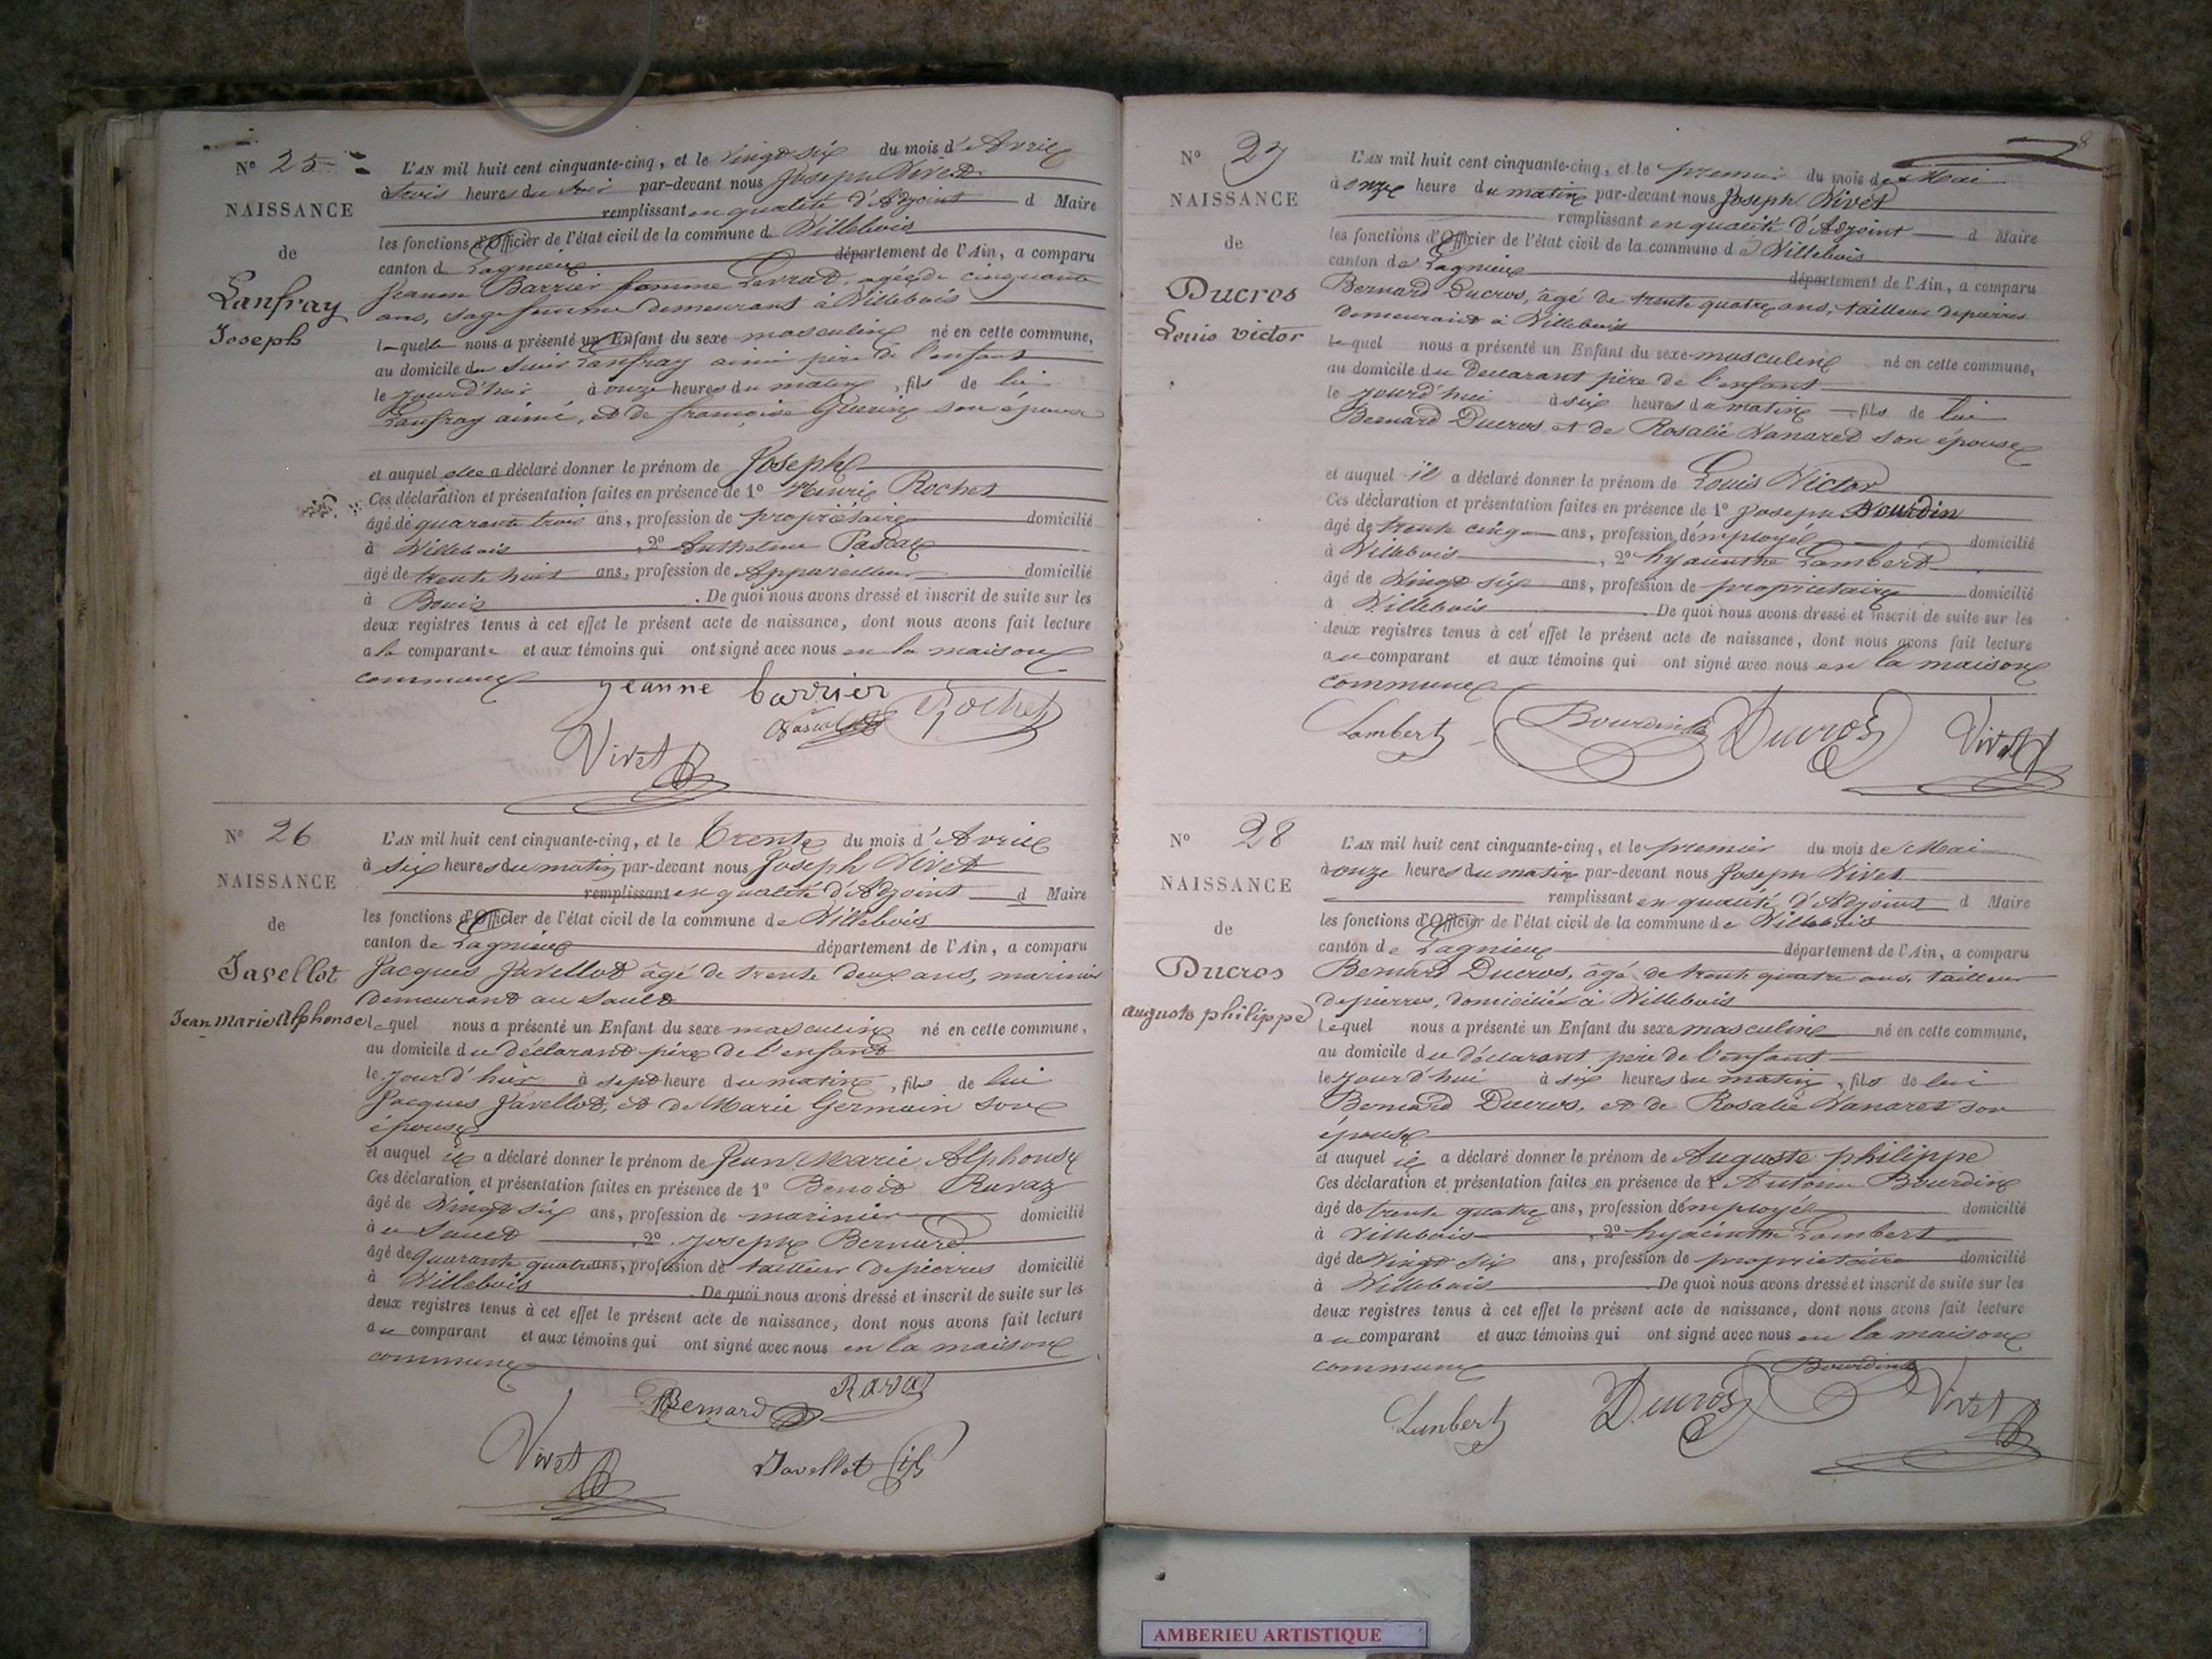 N° 25
NAISSANCE
de
Lanfray
Joseph
L'AN mil huit cent cinquante-cinq, et le vingt six du mois d'Avril
à trois heures du soir par-devant nous Joseph Vivet
remplissant en qualité d'Adjoint d Maire
les fonctions d'Officier de l'état civil de la commune de Villebois
canton de Lagnieu département de l'Ain, a comparu
Jeanne Barrier femme Levrat, agée de cinquante
ans, sage femme demeurant à Villebois
laquelle nous a présenté un Enfant du sexe masculin né en cette commune,
au domicile du sieur Lanfray aimé père de l'enfant
le jourd'hui à onze heures du matin, fils de lui
Lanfray aimé, et de françoise Guerin son épouse
et auquel elle a déclaré donner le prénom de Joseph
Ces déclaration et présentation faites en présence de 1° Henri Rochet
âgé de quarante trois ans, profession de propriétaire domicilié
à Villebois, 2° Anthelme Pascal
âgé de trente huit ans, profession de Appareilleur domicilié
à Bouis. De quoi nous avons dressé et inscrit de suite sur les
deux registres tenus à cet effet le présent acte de naissance, dont nous avons fait lecture
a la comparante et aux témoins qui ont signé avec nous en la maison
commune
jeanne barrier
Pascal Rochet
Vivet
N° 26
NAISSANCE
de
Javellot
Jean Marie Alphonse
L'AN mil huit cent cinquante-cinq, et le trente du mois d'Avril
à six heures du matin par-devant nous Joseph Vivet
remplissant en qualité d'Adjoint d Maire
les fonctions d'Officier de l'état civil de la commune de Villebois
canton de Lagnieu département de l'Ain, a comparu
Jacques Javellot âgé de trente deux ans, marinier
demeurant au Sault
lequel nous a présenté un Enfant du sexe masculin né en cette commune,
au domicile du déclarant père de l'enfant
le jour d'hier à sept heure du matin, fils de lui
Jacques Javellot, et de Marie Germain son
épouse
et auquel il a déclaré donner le prénom de Jean Marie Alphonse
Ces déclaration et présentation faites en présence de 1° Benoit Ravaz
âgé de Vingt six ans, profession de marinier domicilié
à u Sault, 2° Joseph Bernard
âgé de quarante quatre ans, profession de tailleur de pierres domicilié
à Villebois. De quoi nous avons dressé et inscrit de suite sur les
deux registres tenus à cet effet le présent acte de naissance, dont nous avons fait lecture
au comparant et aux témoins qui ont signé avec nous en la maison
commune
Bernard Ravaz
Vivet Javellot fils
8
N° 27
NAISSANCE
de
Ducros
Louis victor
L'AN mil huit cent cinquante-cinq, et le premier du mois de Mai
à onze heure du matin par-devant nous Joseph Vivet
remplissant en qualité d'Adjoint d Maire
les fonctions d'Officier de l'état civil de la commune de Villebois
canton de Lagnieu département de l'Ain, a comparu
Bernard Ducros, âgé de trente quatre ans, tailleur de pierres
demeurant à Villebois
lequel nous a présenté un Enfant du sexe masculin né en cette commune,
au domicile du Déclarant père de l'enfant
le jourd'hui à six heures du matin, fils de lui
Bernard Ducros et de Rosalie Vanaret son épouse
et auquel il a déclaré donner le prénom de Louis Victor
Ces déclaration et présentation faites en présence de 1° Joseph Bourdin
âgé de trente cinq ans, profession d'employé domicilié
à Villebois, 2° hyacinthe Lambert
âgé de Vingt six ans, profession de propriétaire domicilié
à Villebois. De quoi nous avons dressé et inscrit de suite sur les
deux registres tenus à cet effet le présent acte de naissance, dont nous avons fait lecture
au comparant et aux témoins qui ont signé avec nous en la maison
commune
Lambert Bourdin Ducros Vivet
N° 28
NAISSANCE
de
Ducros
auguste philippe
L'AN mil huit cent cinquante-cinq, et le premier du mois de Mai
à onze heures du matin par-devant nous Joseph Vivet
remplissant en qualité d'Adjoint d Maire
les fonctions d'Officier de l'état civil de la commune de Villebois
canton de Lagnieu département de l'Ain, a comparu
Bernard Ducros, âgé de trente quatre ans, tailleur
de pierres, domicilié à Villebois
Lequel nous a présenté un Enfant du sexe masculin né en cette commune,
au domicile du déclarant père de l'enfant
le jourd'hui à six heures du matin, fils de lui
Bernard Ducros, et de Rosalie Vanaret son
épouse
et auquel il a déclaré donner le prénom de Auguste philippe
Ces déclaration et présentation faites en présence de 1° Antoine Bourdin
âgé de trente quatre ans, profession d'employé domicilié
à Villebois, 2° hyacinthe Lambert
âgé de Vingt six ans, profession de propriétaire domicilié
à Villebois. De quoi nous avons dressé et inscrit de suite sur les
deux registres tenus à cet effet le présent acte de naissance, dont nous avons fait lecture
au comparant et aux témoins qui ont signé avec nous en la maison
commune Bourdin
Lambert Ducros Vivet
AMBERIEU ARTISTIQUE